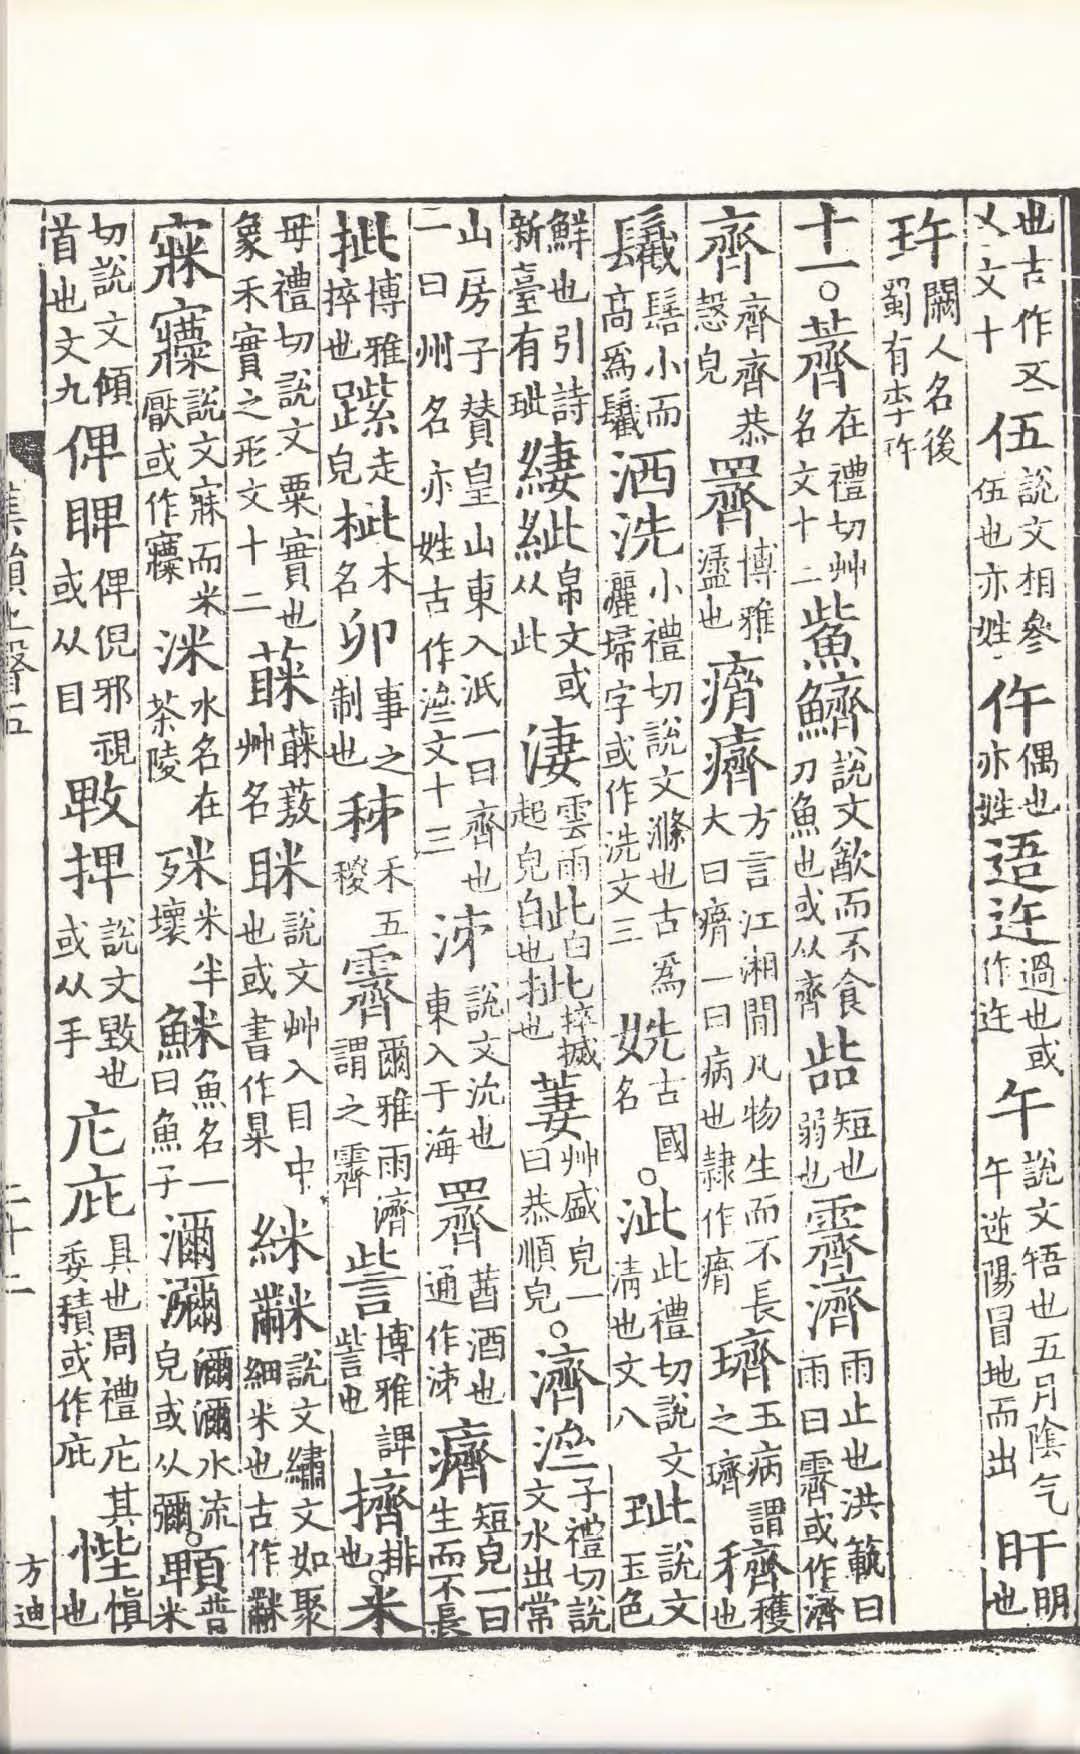 也古作㐅文十伍說文相參伍也亦姓仵偶也亦姓逜迕過也或作迕午說文啎也五月陰气午逆陽冒地而出旿明也
玝闕人名後蜀有李玝
十一○薺在禮切艸名文十二鮆鱭說文㱃而不食刀魚也或从齊㗪短也弱也霽濟雨止也洪範曰雨曰霽或作濟
齊齊齊恭慤皃博雅盪也癠方言江湘閒凡物生而不長大曰一曰病也隸作璾玉病謂之璾穧穫也
髻小而高爲洒洗小禮切說文滌也古爲灑埽字或作洗文三姺古國名○泚此禮切說文清也文八玼說文玉色
鮮也引詩新臺有玼緀紪帛文或从此淒雲雨起皃白也捽搣也萋艸盛皃一曰恭順皃○濟泲子禮切說文水出常
山房子贊皇山東入泜一曰齊也一曰州名亦姓古作泲文十三泲說文沇也東入于海酋酒也通作泲癠短皃一曰生而不長
㧗博雅捽也跐走皃木名事之制也秭禾五稯霽爾雅雨濟謂之霽訾博雅諀訾也擠排也○米
母禮切說文粟實也象禾實之形文十二蔝蔝蔜艸名眯說文艸入目中也或書作絊說文繡文如聚細米也古作
說文寐而未厭或作洣水名在茶陵米半壞魚名一曰魚子濔瀰濔濔水流皃或从彌○普米
切說文傾首也文九俾睥俾倪邪視或从目捭說文毀也或从手庀庇具也周禮庀其委積或作庇悂慎也
集韻上聲五
二十二
方迪